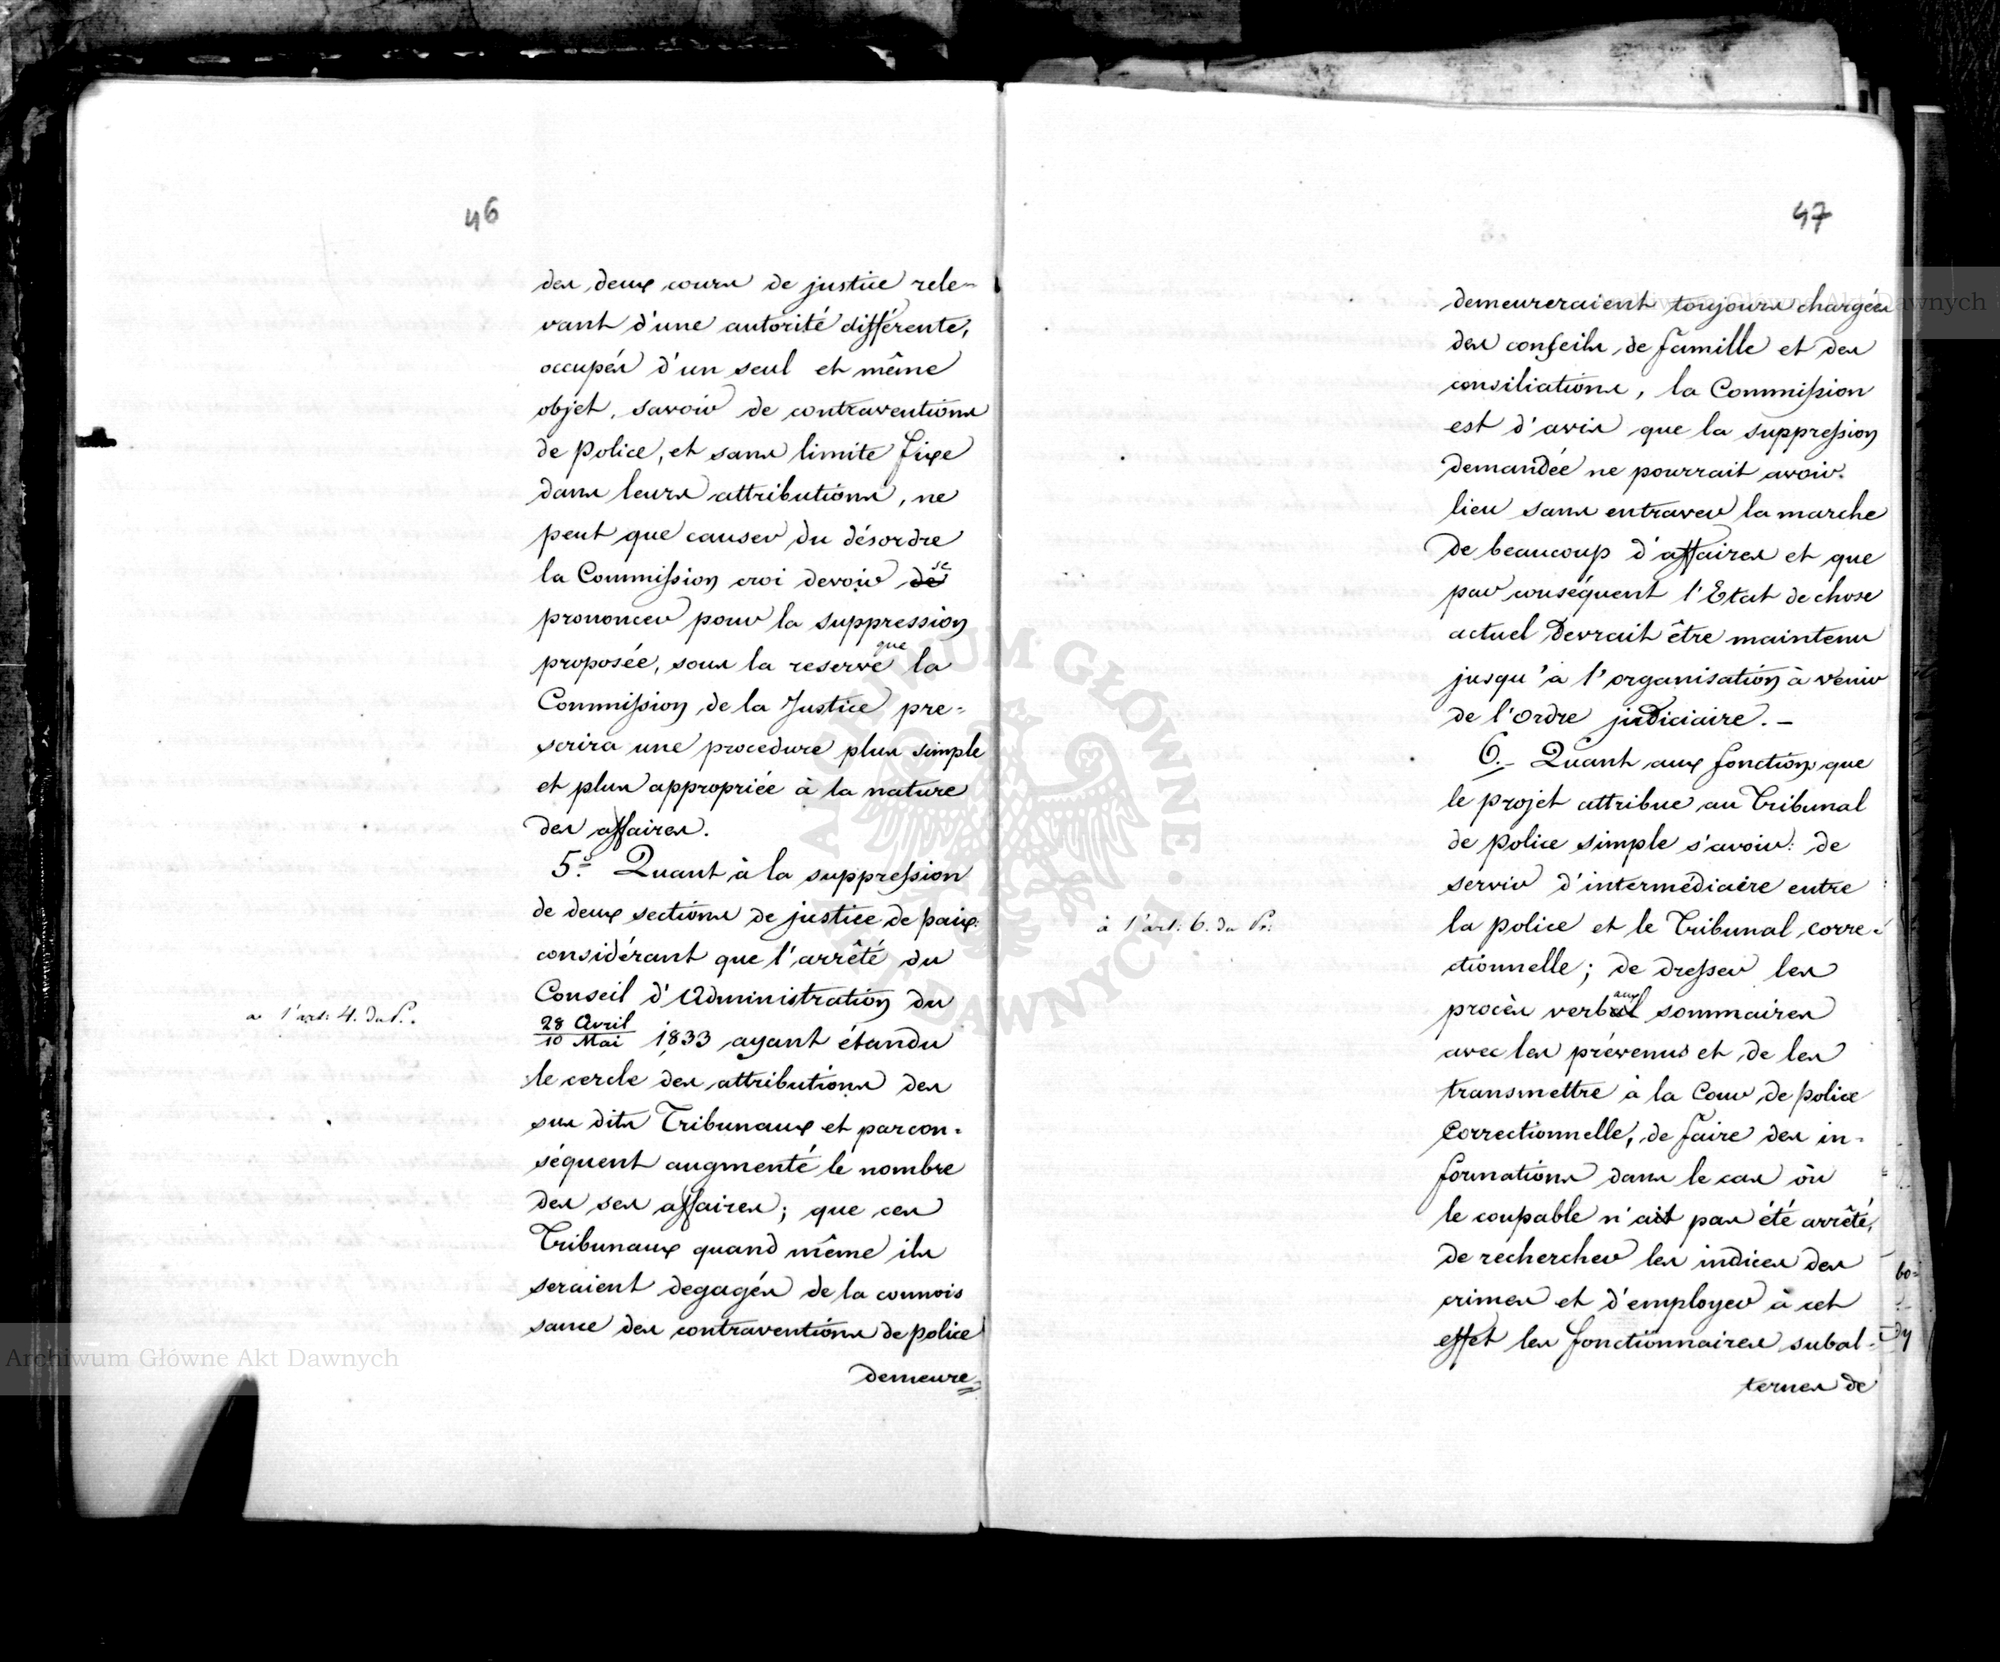 46
des deux cours de justice rele-
vant d'une autorité différente,
occupés d'un seul et même
objet, savoir de contraventions
de police, et sans limite fixe
dans leurs attributions, ne
peut que causer du désordre
la Commission croi devoir de se
prononcer pour la suppression
proposée, sous la reserve que la
Commission de la Justice pre-
scrira une procedure plus simple
et plus appropriée à la nature
des affaires.
5.° Quant à la suppression
de deux sections de justice de paix:
considérant que l'arrêté du
Conseil d'Administration du
a l'art: 4. du P..
28 Avril
10 Mai 1833 ayant étandu
le cercle des attributions des
sus dits Tribunaux et parcon-
séquent augmenté le nombre
des ses affaires; que ces
Tribunaux quand même ils
seraient degagés de la connois
sance des contraventions de police
demeure=
47
demeureraient toujours chargées
des conseils de famille et des
consiliations, la Commission
est d'avis que la suppression
demandée ne pourrait avoir
lieu sans entraver la marche
de beaucoup d'affaires et que
par conséquent l'Etat de chose
actuel devrait être maintenu
jusqu'à l'organisation à venir
de l'ordre judiciaire. —
6.- Quant aux fonctions que
le projet attribue au Tribunal
de police simple s'avoir: de
servir d'intermédiaire entre
à l'art: 6. du Pr:
la police et le Tribunal corre-
ctionnelle; de dresser les
procès verbal aux sommaires
avec les prévenus et de les
transmettre à la Cour de police
Correctionnelle, de faire des in-
formations dans le cas où
le coupable n'ait pas été arrêté,
de rechercher les indices des
crimes et d'employer à cet
effet les fonctionnaires subal-
ternes de
bo-
dy
Archiwum Główne Akt Dawnych
Archiwum Główne Akt Dawnych
ARCHIWUM GŁÓWNE AKT DAWNYCH